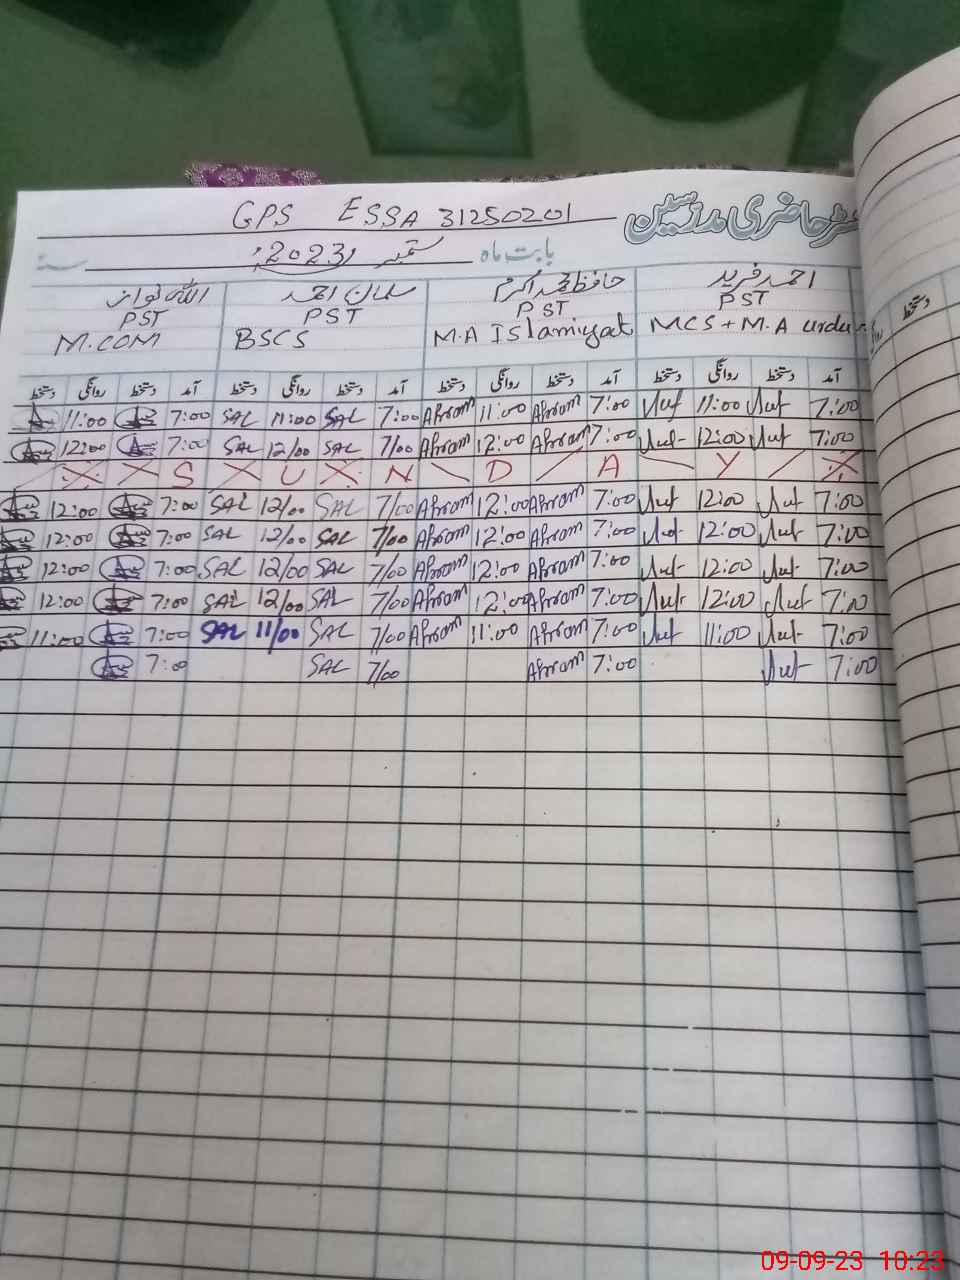 GPS ESSA 31250201
رجسٹر حاضری مدرسین
بابت ماہ ستمبر 2023ء سنہ
احمد فرید حافظ محمد اکرم سلمان احمد اللہ نواز
PST PST PST PST
M.COM BSCS M.A Islamiyat MCS + M.A urdu
آمد دستخط روانگی دستخط آمد دستخط روانگی دستخط آمد دستخط روانگی دستخط آمد دستخط روانگی دستخط
دستخط
11:00 7:00 SAL 11:00 SAL 7:00 Akram 11:00 Akram 7:00 11:00 7:00
12:00 7:00 SAL 12/00 SAL 7/00 Akram 12:00 Akram 7:00 12:00 7:00
S U N D A Y
12:00 7:00 SAL 12/00 SAL 7/00 Akram 12:00 Akram 7:00 12:00 7:00
12:00 7:00 SAL 12/00 SAL 7/00 Akram 12:00 Akram 7:00 12:00 7:00
12:00 7:00 SAL 12/00 SAL 7/00 Akram 12:00 Akram 7:00 12:00 7:00
12:00 7:00 SAL 12/00 SAL 7/00 Akram 12:00 Akram 7:00 12:00 7:00
11:00 7:00 SAL 11/00 SAL 7/00 Akram 11:00 Akram 7:00 11:00 7:00
7:00 SAL 7/00 Akram 7:00 7:00
09-09-23 10:23